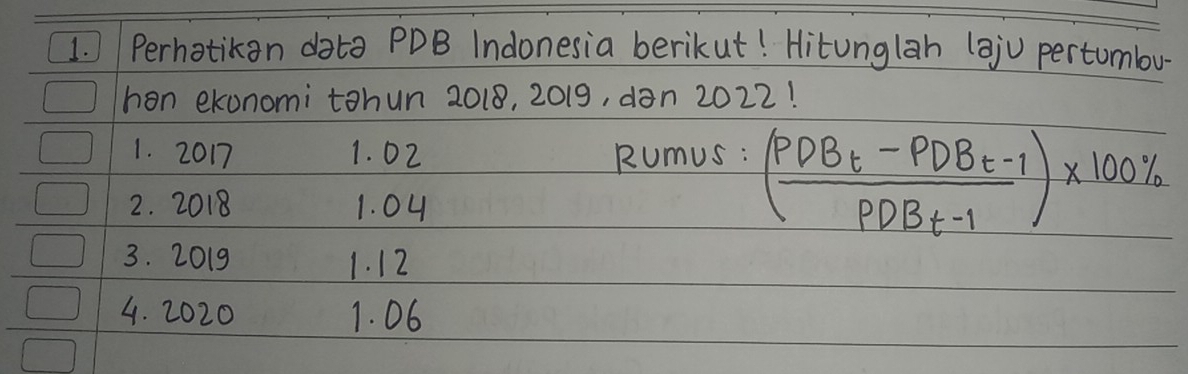 1. Perhatikan data PDB Indonesia berikut! Hitunglah laju pertumbu-
han ekonomi tahun 2018, 2019, dan 2022!
1. 2017 1.02 Rumus : (PDBt - PDBt-1 / PDBt-1) x 100%
2. 2018 1.04
3. 2019 1.12
4. 2020 1.06